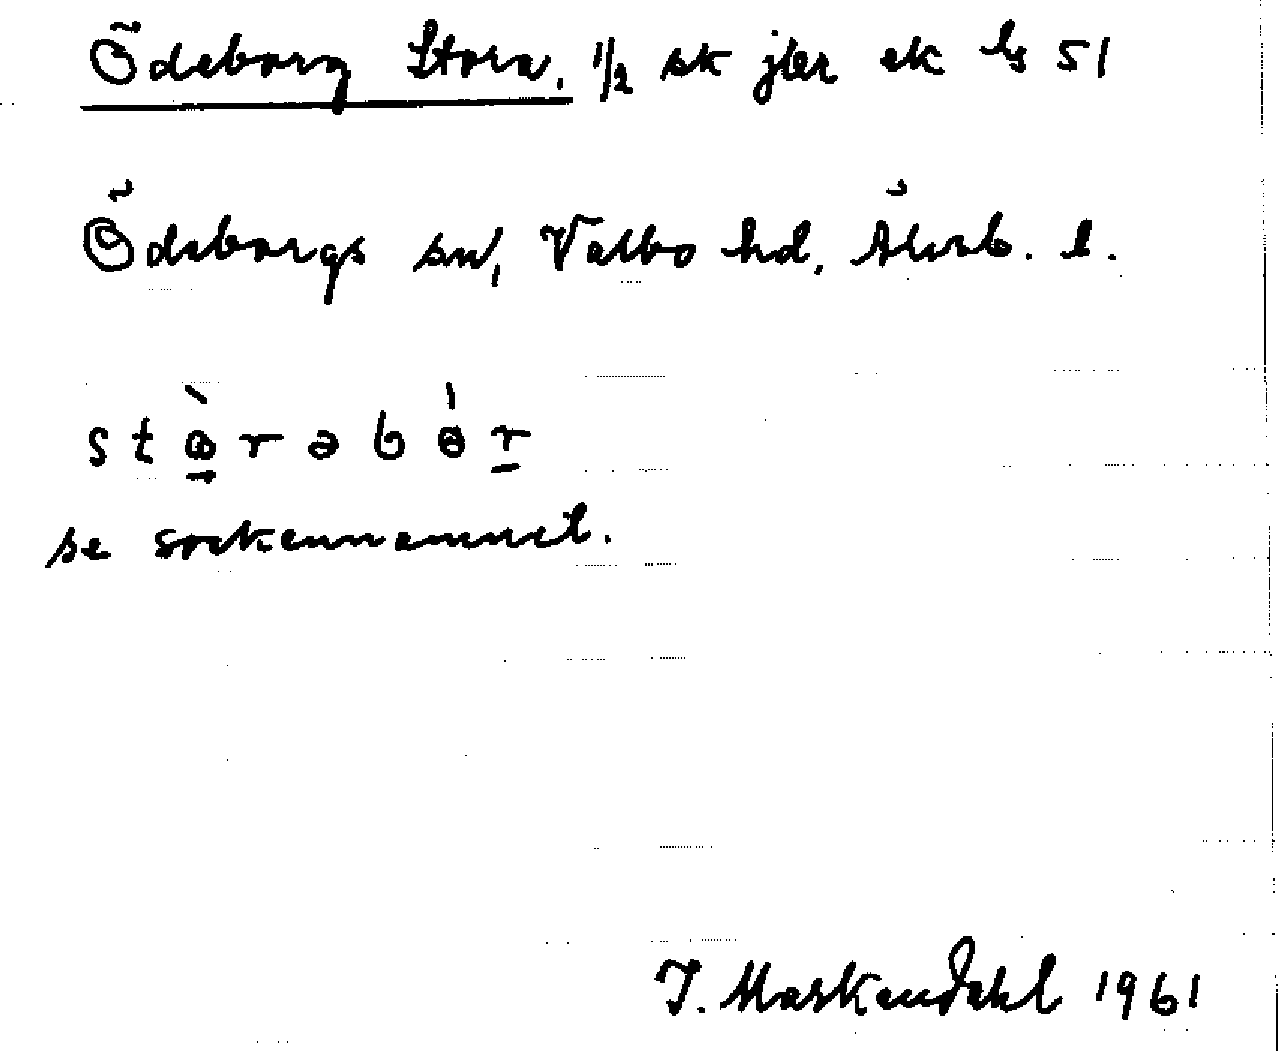 Ödeborg Stora, 1/2 sk jbr ek bs 51
Ödeborgs sn, Valbo hd, Älvsb. l.
stɵ̀rəbɵ́r
se sockennamnet.
J. Markendahl 1961